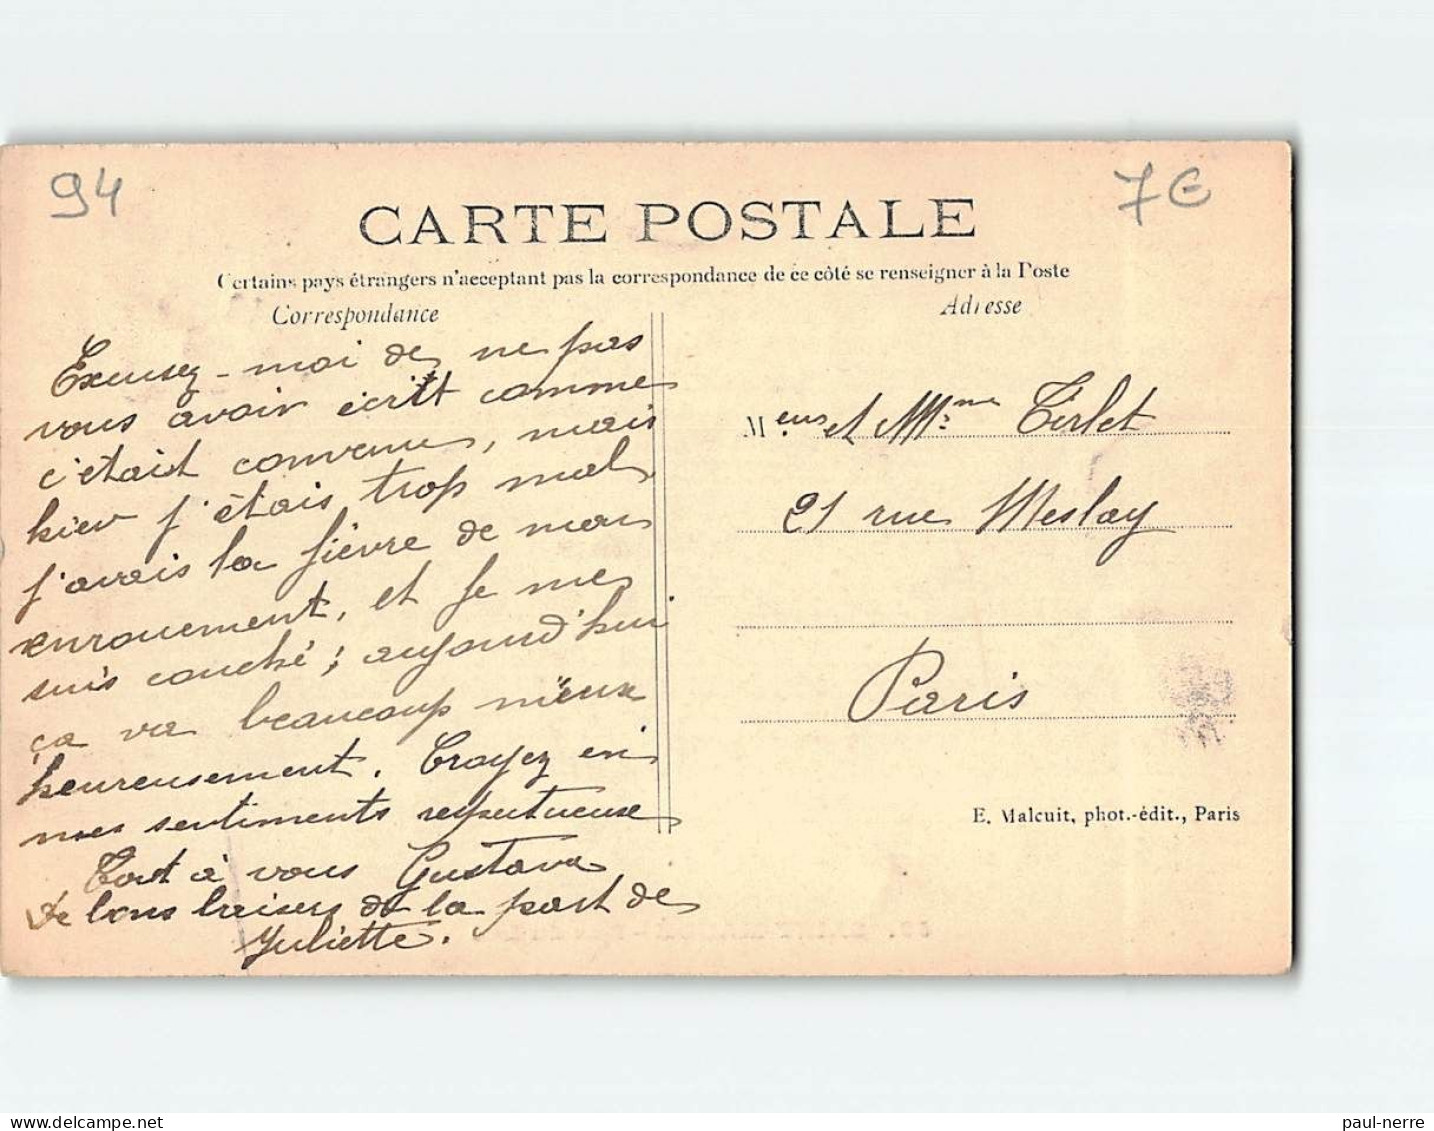 94
7€
CARTE POSTALE
Certains pays étrangers n'acceptant pas la correspondance de ce côté se renseigner à la Poste
Correspondance
Adresse
Excusez-moi de ne pas
vous avoir écrit comme
c'était convenu, mais
hier j'étais trop mal
j'avais la fièvre de mon
enrouement, et je me
suis couché; aujourd'hui
ça va beaucoup mieux
heureusement. Croyez en
mes sentiments respectueux
Tout à vous Gustave
de bons baisers de la part de
Juliette.
Meus et Mme Tirlet
21 rue Meslay
Paris
E. Malcuit, phot.-édit., Paris
paul-nerre